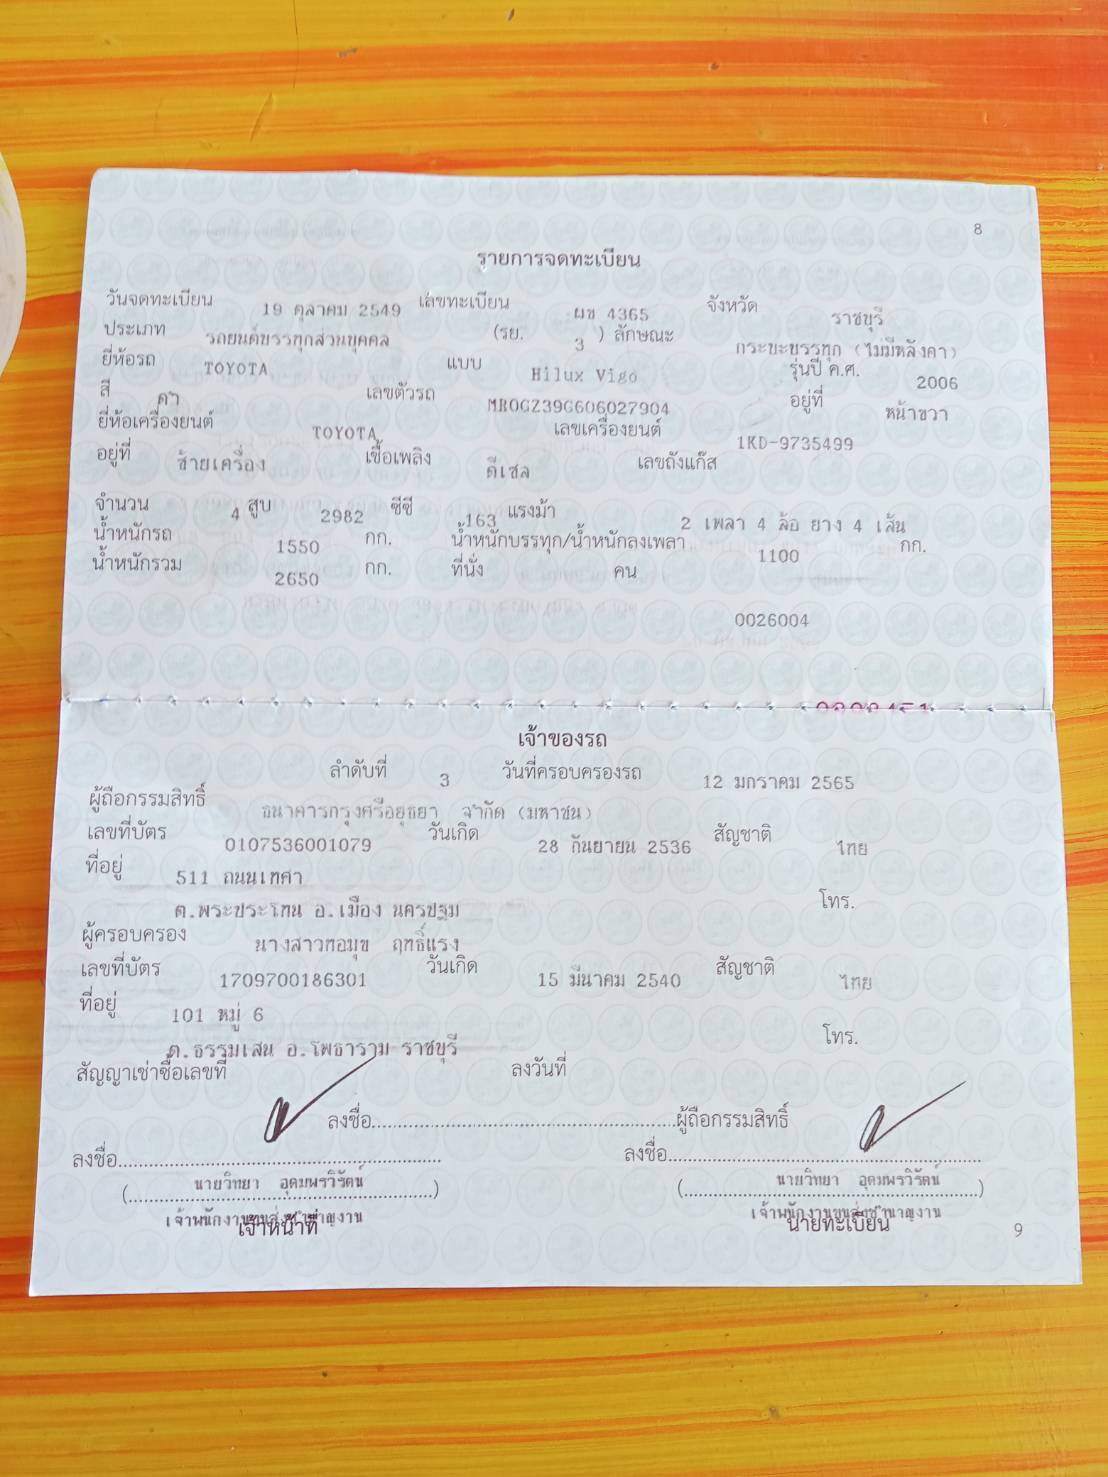 8
รายการจดทะเบียน
วันจดทะเบียน 19 ตุลาคม 2549 เลขทะเบียน ผข 4365 จังหวัด ราชบุรี
ประเภท รถยนต์บรรทุกส่วนบุคคล (รย. 3 ) ลักษณะ กระบะบรรทุก (ไม่มีหลังคา)
ยี่ห้อรถ TOYOTA แบบ Hilux Vigo รุ่นปี ค.ศ. 2006
สี ดำ เลขตัวรถ MR0GZ39G606027904 อยู่ที่ หน้าขวา
ยี่ห้อเครื่องยนต์ TOYOTA เลขเครื่องยนต์ 1KD-9735499
อยู่ที่ ซ้ายเครื่อง เชื้อเพลิง ดีเซล เลขถังแก๊ส
จำนวน 4 สูบ 2982 ซีซี 163 แรงม้า 2 เพลา 4 ล้อ ยาง 4 เส้น
น้ำหนักรถ 1550 กก. น้ำหนักบรรทุก/น้ำหนักลงเพลา 1100 กก.
น้ำหนักรวม 2650 กก. ที่นั่ง คน
0026004
เจ้าของรถ
ลำดับที่ 3 วันที่ครอบครองรถ 12 มกราคม 2565
ผู้ถือกรรมสิทธิ์ ธนาคารกรุงศรีอยุธยา จำกัด (มหาชน)
เลขที่บัตร 0107536001079 วันเกิด 28 กันยายน 2536 สัญชาติ ไทย
ที่อยู่ 511 ถนนเทศา
ต.พระประโทน อ.เมือง นครปฐม โทร.
ผู้ครอบครอง นางสาวหอมมุข ฤทธิ์แรง
เลขที่บัตร 1709700186301 วันเกิด 15 มีนาคม 2540 สัญชาติ ไทย
ที่อยู่ 101 หมู่ 6
ต.ธรรมเสน อ.โพธาราม ราชบุรี โทร.
สัญญาเช่าซื้อเลขที่ ลงวันที่
ลงชื่อ............................................................ผู้ถือกรรมสิทธิ์
ลงชื่อ............................................................ ลงชื่อ............................................................
(นายวิทยา อุดมพรวิรัตน์) (นายวิทยา อุดมพรวิรัตน์)
เจ้าพนักงานขนส่งชำนาญงาน เจ้าพนักงานขนส่งชำนาญงาน
เจ้าหน้าที่ นายทะเบียน
9